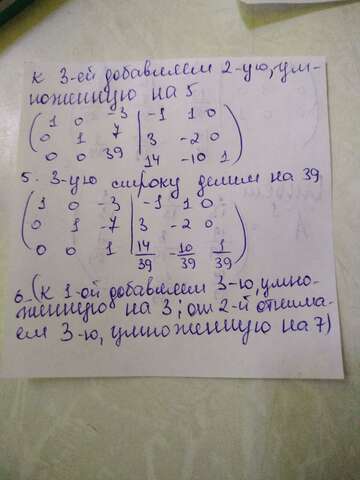 к 3-ей добавляем 2-ую, ум-
ноженную на 5
1 0 -3 | -1 1 0
0 1 7 | 3 -2 0
0 0 39 | 14 -10 1
5. 3-ую строку делим на 39
1 0 -3 | -1 1 0
0 1 -7 | 3 -2 0
0 0 1 | 14/39 -10/39 1/39
6. (к 1-ой добавляем 3-ю, умно-
женную на 3; от 2-й отнима-
ем 3-ю, умноженную на 7)